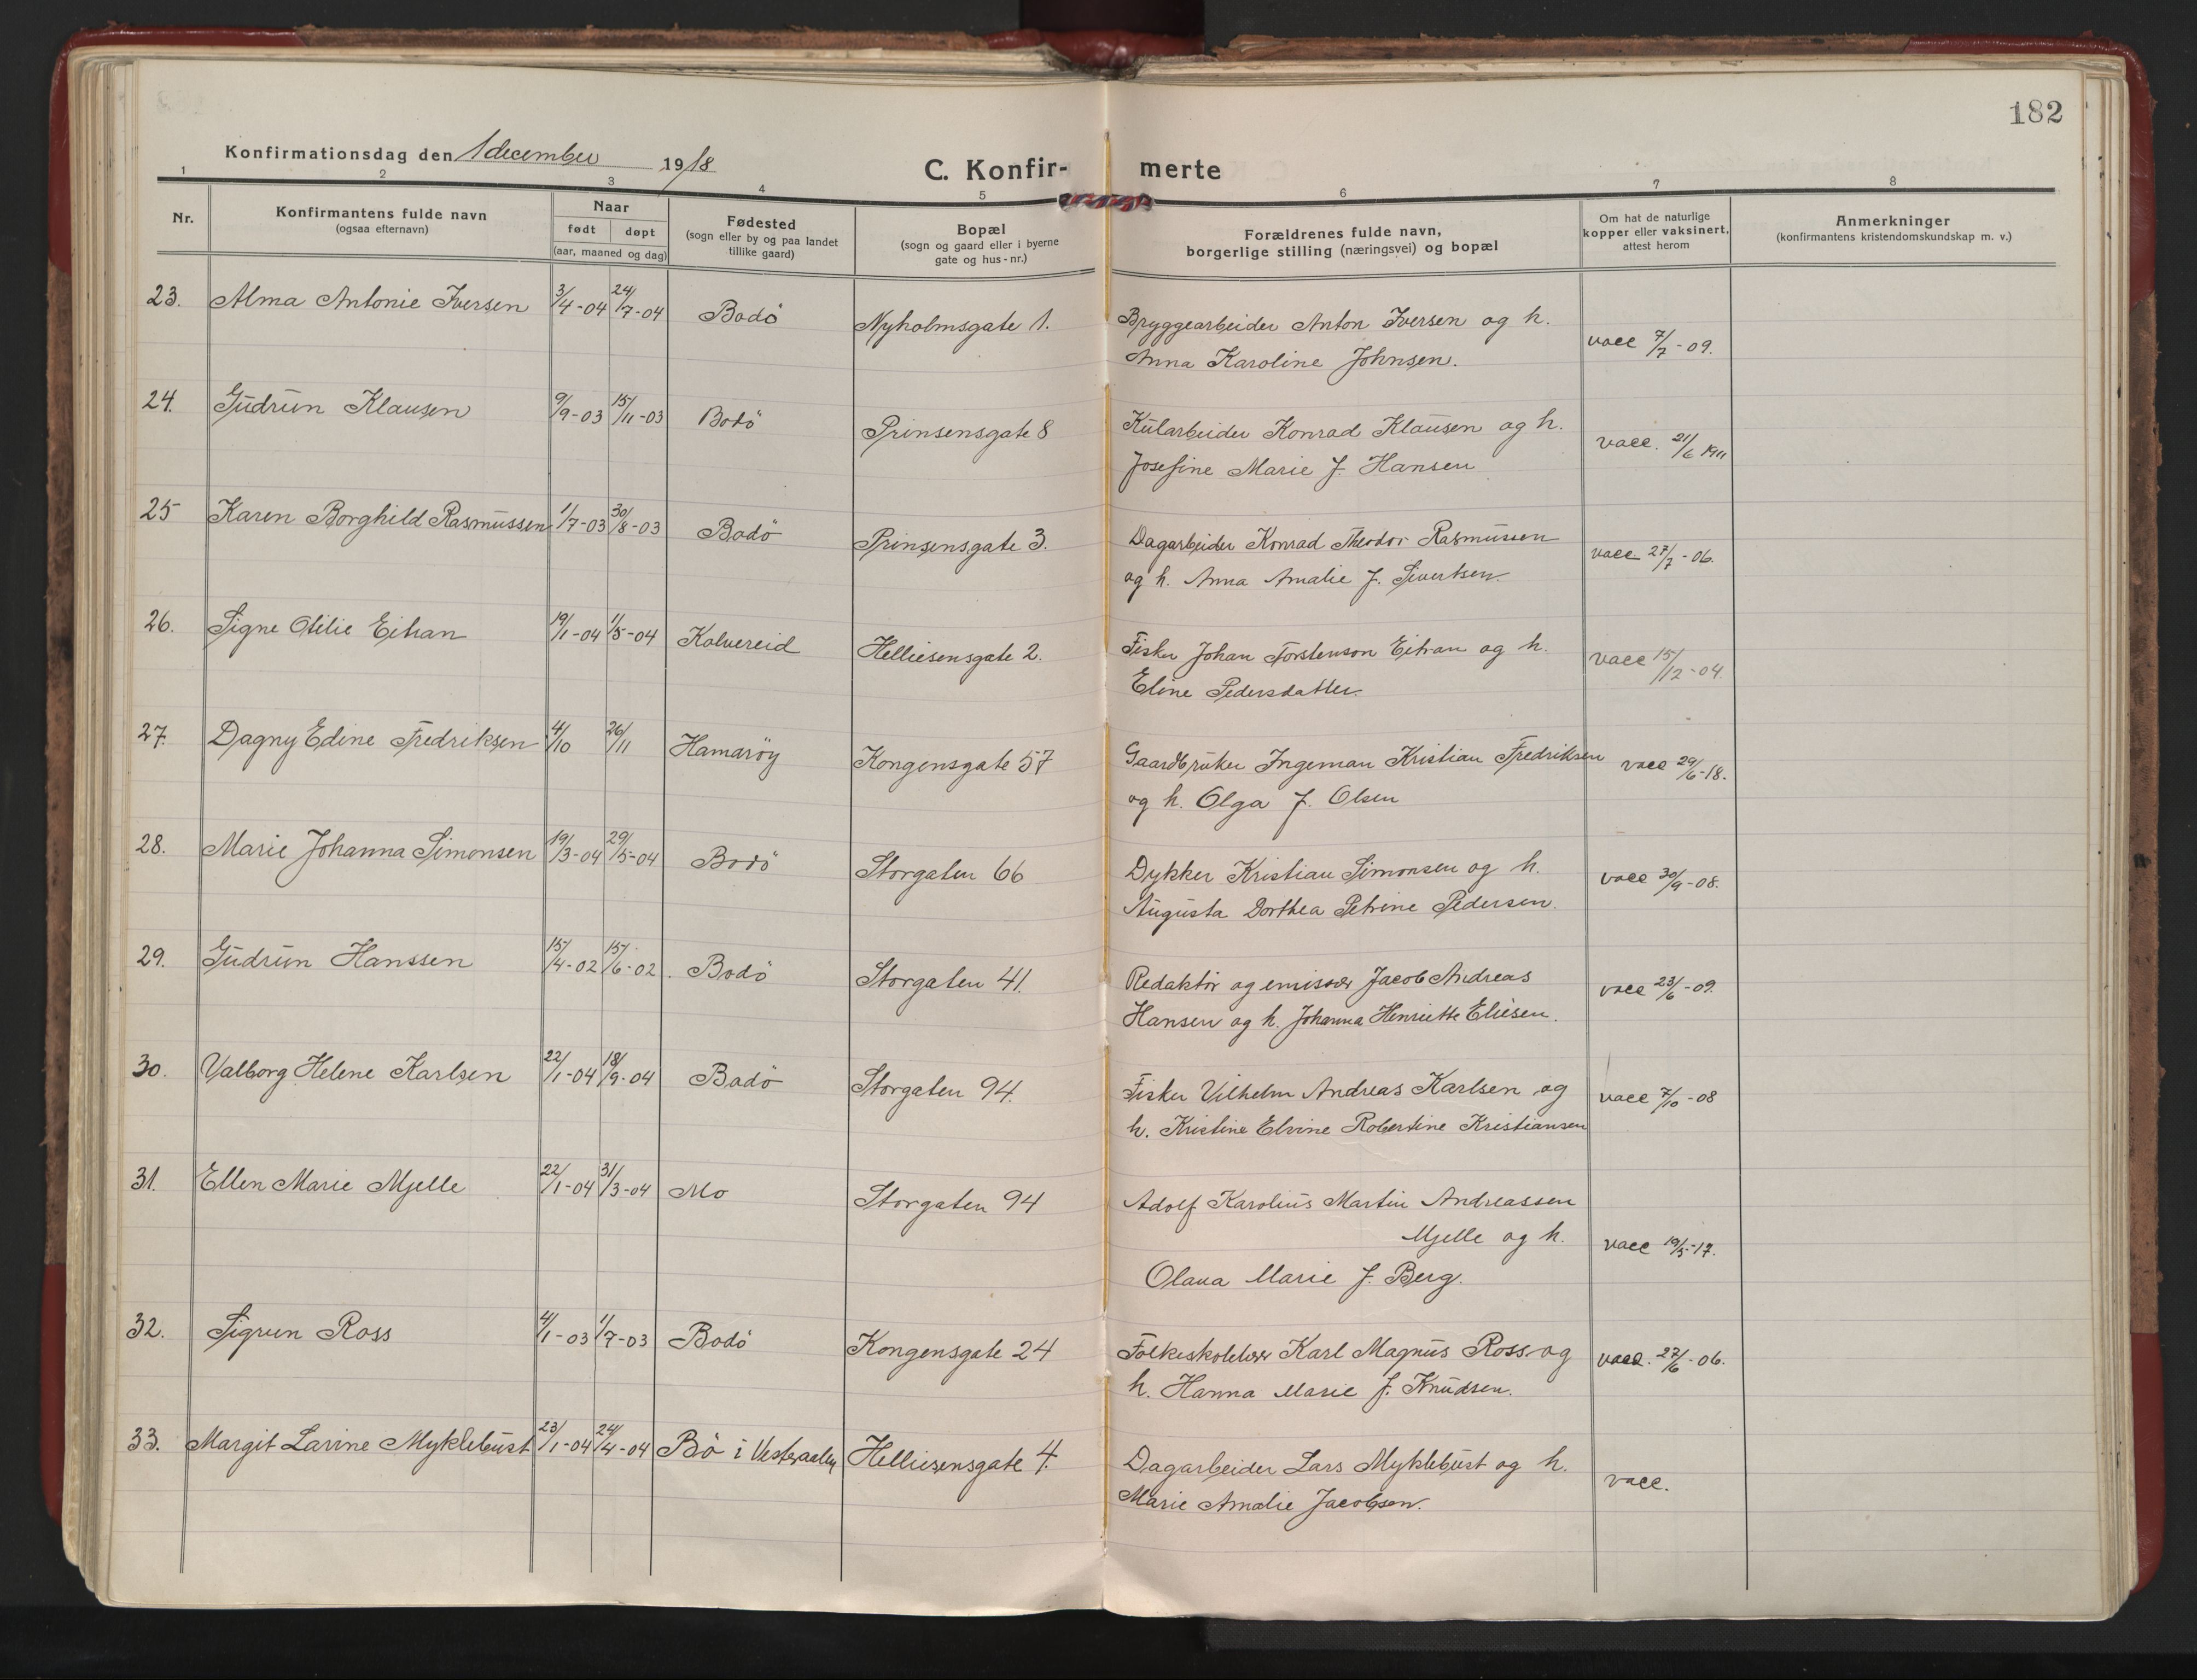 182
Konfirmationsdag den 1 december 1918
C. Konfir- merte
1 2 3 4 5 6 7 8
Nr.
Konfirmantens fulde navn
(ogsaa efternavn)
Naar
født døpt
(aar, maaned og dag)
Fødested
(sogn eller by og paa landet
tillike gaard)
Bopæl
(sogn og gaard eller i byerne
gate og hus-nr.)
Forældrenes fulde navn,
borgerlige stilling (næringsvei) og bopæl
Om hat de naturlige
kopper eller vaksinert,
attest herom
Anmerkninger
(konfirmantens kristendomskundskap m. v.)
23. Alma Antonie Iversen 3/4-04 24/7-04 Bodö Nyholmsgate 1. Bryggearbeider Anton Iversen og h. vacc 7/7-09.
Anna Karoline Johnsen.
24. Gudrun Klausen 9/9-03 15/11-03 Bodö Prinsensgate 8 Kularbeider Konrad Klausen og h. vacc. 21/6 1911
Josefine Marie f. Hansen
25 Karen Borghild Rasmussen 1/7-03 30/8-03 Bodö Prinsensgate 3. Dagarbeider Konrad Theodor Rasmussen vacc 27/7-06.
og h. Anna Amalie f. Sivertsen.
26. Signe Otelie Eitran 19/1-04 1/5-04 Kalvereid Helliesensgate 2. Fisker Johan Torstenson Eitran og h. vacc 15/12-04.
Eline Pedersdatter.
27. Dagny Edine Fredriksen 4/10 26/11 Hamaröy Kongensgate 57 Gaardbruker Ingeman Kristian Fredriksen vacc 29/6-18.
og h. Olga f. Olsen
28. Marie Johanna Simonsen 19/3-04 29/5-04 Bodö Storgaten 66 Dykker Kristian Simonsen og h. vacc 30/9-08.
Augusta Dorthea Petrine Pedersen.
29. Gudrun Hanssen 15/4-02 15/6-02. Bodö Storgaten 41. Redaktör og emissær Jacob Andreas vacc 23/6-09.
Hansen og h. Johanna Henriette Eliesen.
30. Valborg Helene Karlsen 22/1-04 18/9-04 Bodö Storgaten 94. Fisker Vilhelm Andreas Karlsen og vacc 7/10-08
h. Kristine Elvine Robertine Kristiansen
31. Ellen Marie Mjelle 22/1-04 31/3-04 Mo Storgaten 94 Adolf Karolius Martin Andreassen
Mjelle og h. vacc 19/5-17.
Olava Marie f. Berg.
32. Sigrun Ross 4/1-03 1/7-03 Bodö Kongensgate 24 Folkeskolelærer Karl Magnus Ross og vacc. 27/6-06.
h. Hanna Marie f. Knudsen.
33. Margit Larine Myklebust 23/1-04 24/4-04 Bö i Vesteraalen Helliesensgate 4. Dagarbeider Lars Myklebust og h. vacc.
Marie Amalie Jacobsen.